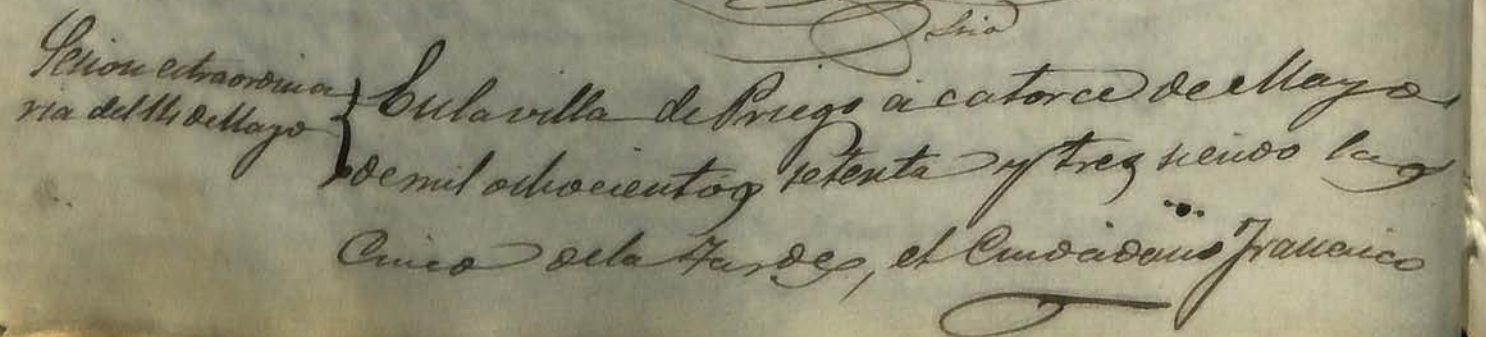 Srio
Sesion extraordina
ria del 14 de Mayo
En la villa de Priego á catorce de Mayo
de mil ochocientos setenta y tres siendo las
Cinco de la Tarde, el Ciudadano Francisco